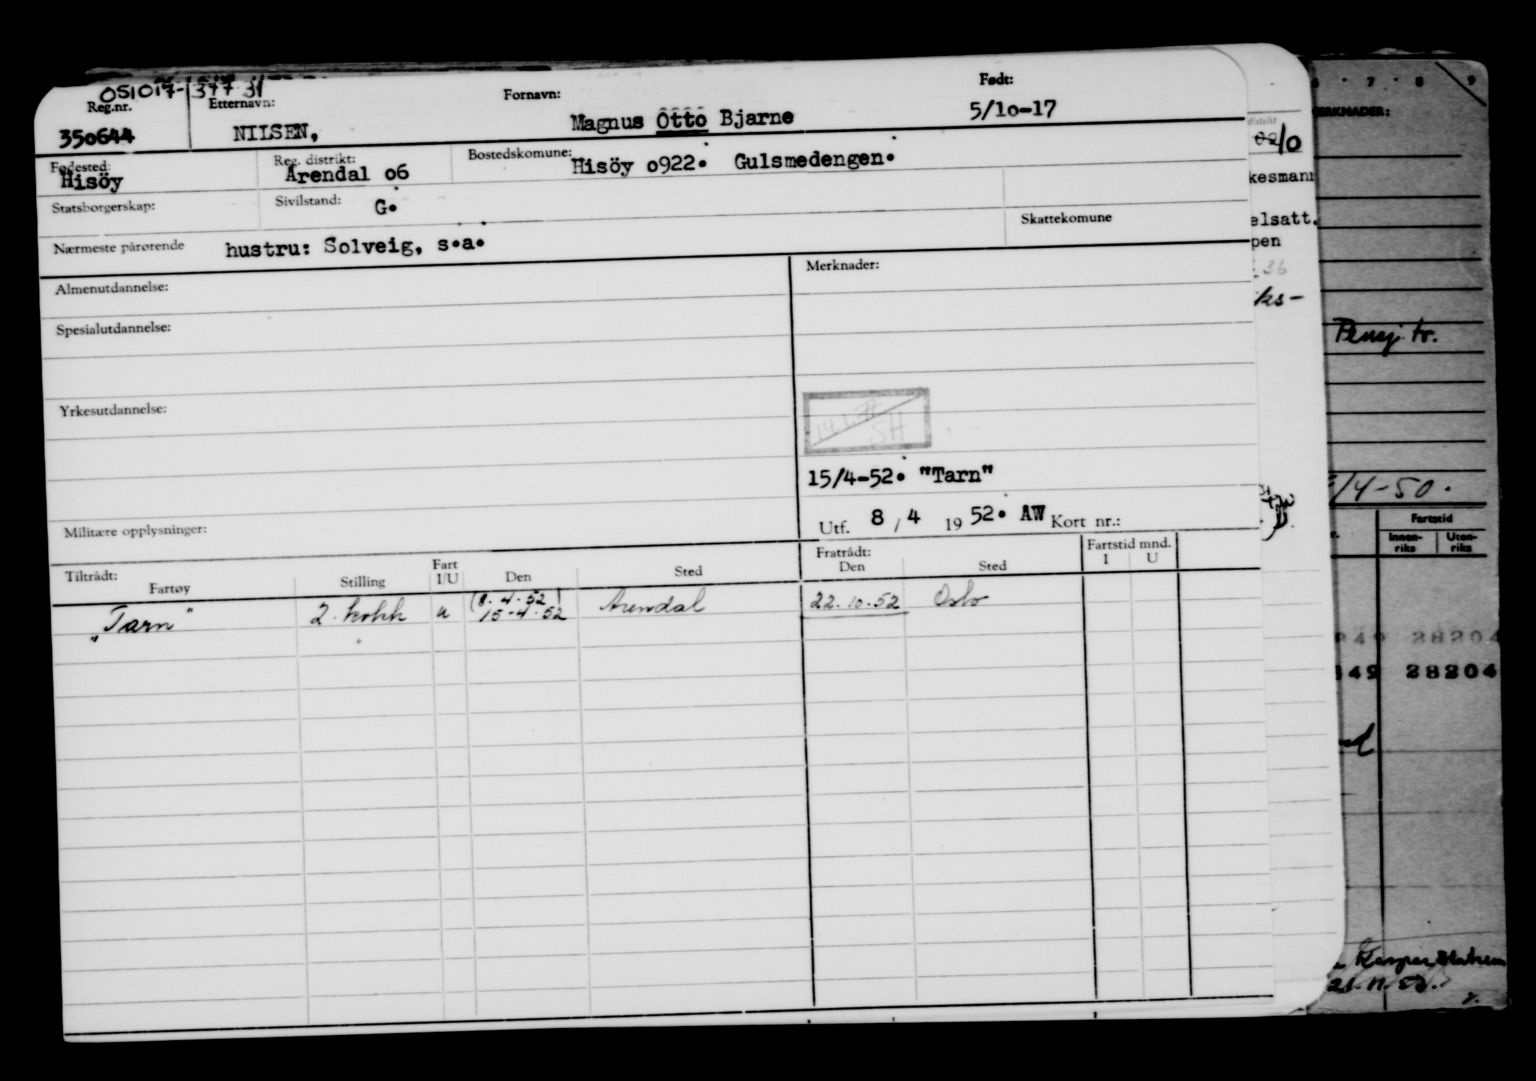 051017-37731
Reg.nr. Etternavn: Fornavn: Født:
350644 NILSEN, Magnus Otto Bjarne 5/10-17
Fødested: Reg. distrikt: Bostedskommune:
Hisöy Arendal 06 Hisöy 0922. Gulsmedengen.
Statsborgerskap: Sivilstand: G.
Skattekomune
Nærmeste pårørende hustru: Solveig, s.a.
Almenutdannelse: Merknader:
Spesialutdannelse:
Yrkesutdannelse:
SH
15/4-52. "Tarn"
Militære opplysninger: Utf. 8 / 4 19 52. AW Kort nr.:
Tiltrådt: Fratrådt: Fartstid mnd.
Fartøy Stilling Fart I/U Den Sted Den Sted I U
"Tarn" 2. kokk u (8.4.52) 15.4.52 Arendal 22.10.52 Oslo
6 7 8 9
ERKNADER:
distrikt
02/10
kesmann
elsatt.
pen
36
ks-
Pensj. tr.
/4-50.
Fartstid
Innen-riks Uten-riks
949 28204
949 28204
21.11.53.